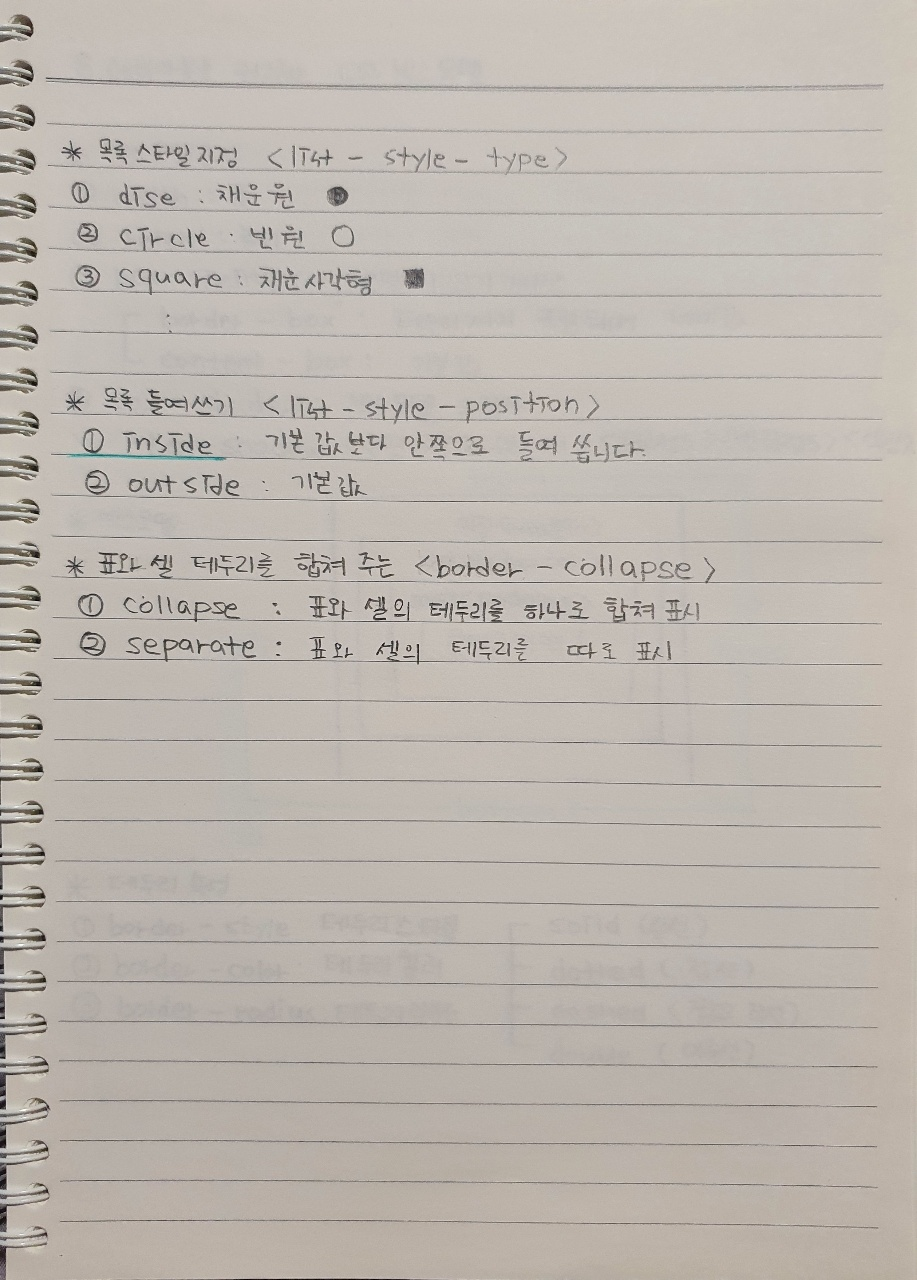 * 목록 스타일 지정 <list - style - type>
① disc : 채운 원 ●
② circle : 빈 원 ○
③ square : 채운 사각형 ■
:
* 목록 들여쓰기 <list - style - position>
① inside : 기본 값보다 안쪽으로 들여 씁니다.
② outside : 기본값
* 표와 셀 테두리를 합쳐 주는 <border - collapse>
① collapse : 표와 셀의 테두리를 하나로 합쳐 표시
② separate : 표와 셀의 테두리를 따로 표시